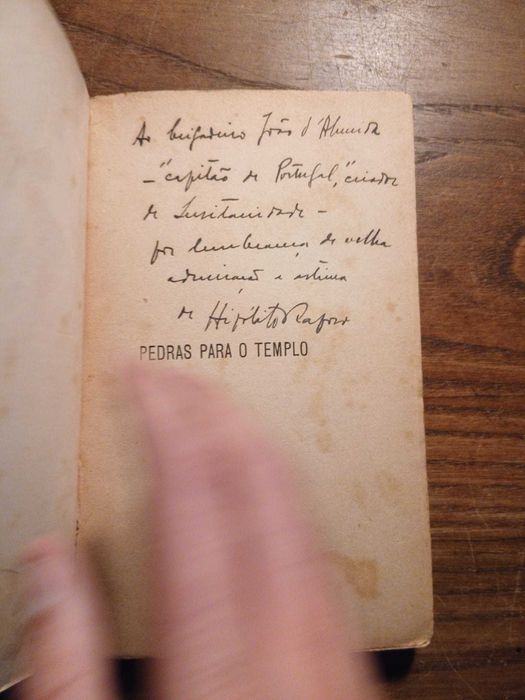 Ao brigadeiro João d'Almeida
– "capitão de Portugal," criador
de Lusitanidade –
por lembrança de velha
admiração e estima
de Hipólito Raposo
PEDRAS PARA O TEMPLO